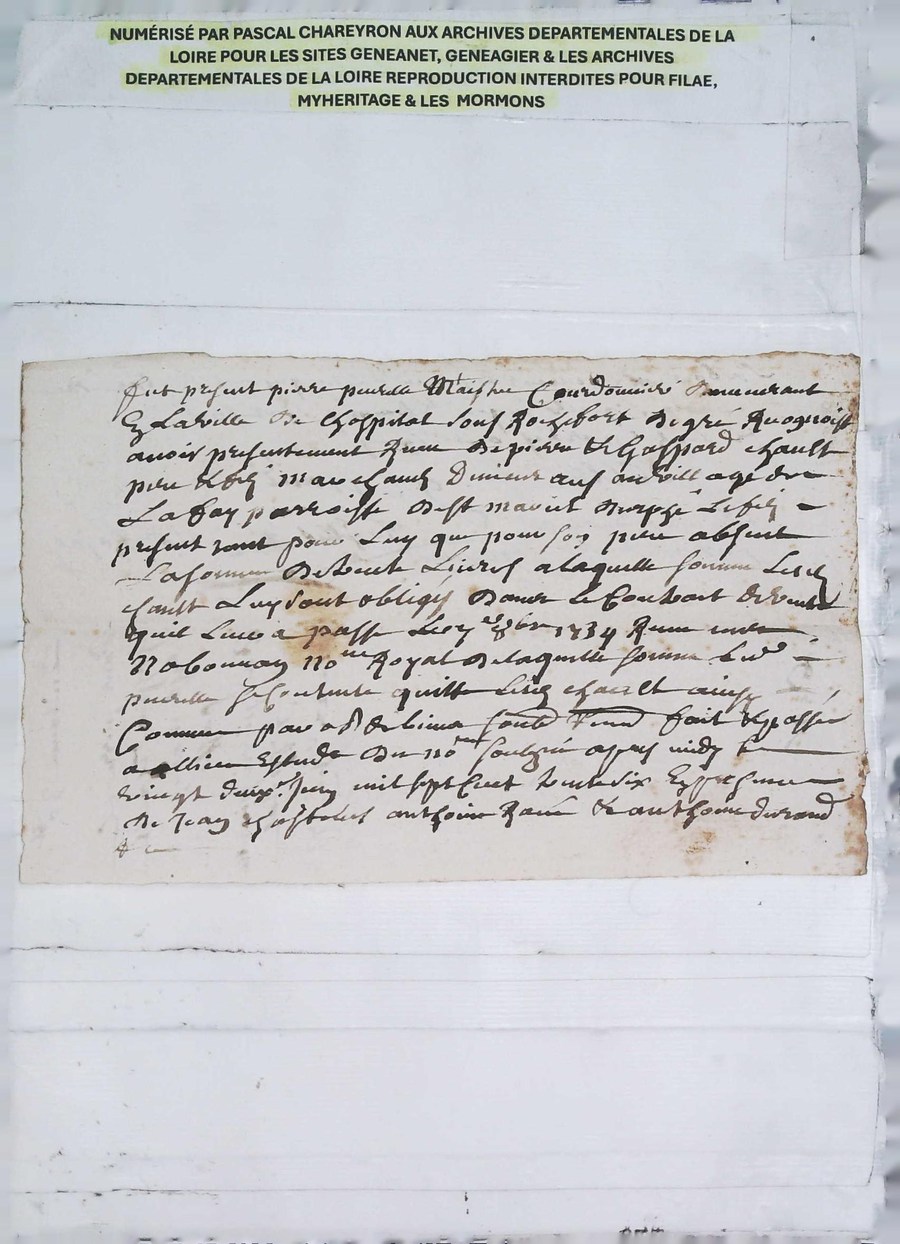 NUMÉRISÉ PAR PASCAL CHAREYRON AUX ARCHIVES DEPARTEMENTALES DE LA
LOIRE POUR LES SITES GENEANET, GENEAGIER & LES ARCHIVES
DEPARTEMENTALES DE LA LOIRE REPRODUCTION INTERDITES POUR FILAE,
MYHERITAGE & LES MORMONS
fut present pierre Maistre Courdonnier demeurant
En La ville de Lhospital sous Rochefort de gré Recognoist
avoir presentement Receu de pierre & Gaspard chault
pere & fils marchands au village de
La fay parroisse de st Le fils
present tant pour Luy que pour son pere absent
La somme de trente Livres a laquelle somme Les
chault Luy sont obligés dans Le Contract de vente
quil Leur a passé Le 1734 Receu
No.re Royal de laquelle somme Led
se Contente quitte chault
Comme par fait & passé
Estude du no.re soubz.né apres midy Le
vingt juin mil sept Cent trente six En presence
de Jean anthoine & anthoine durand